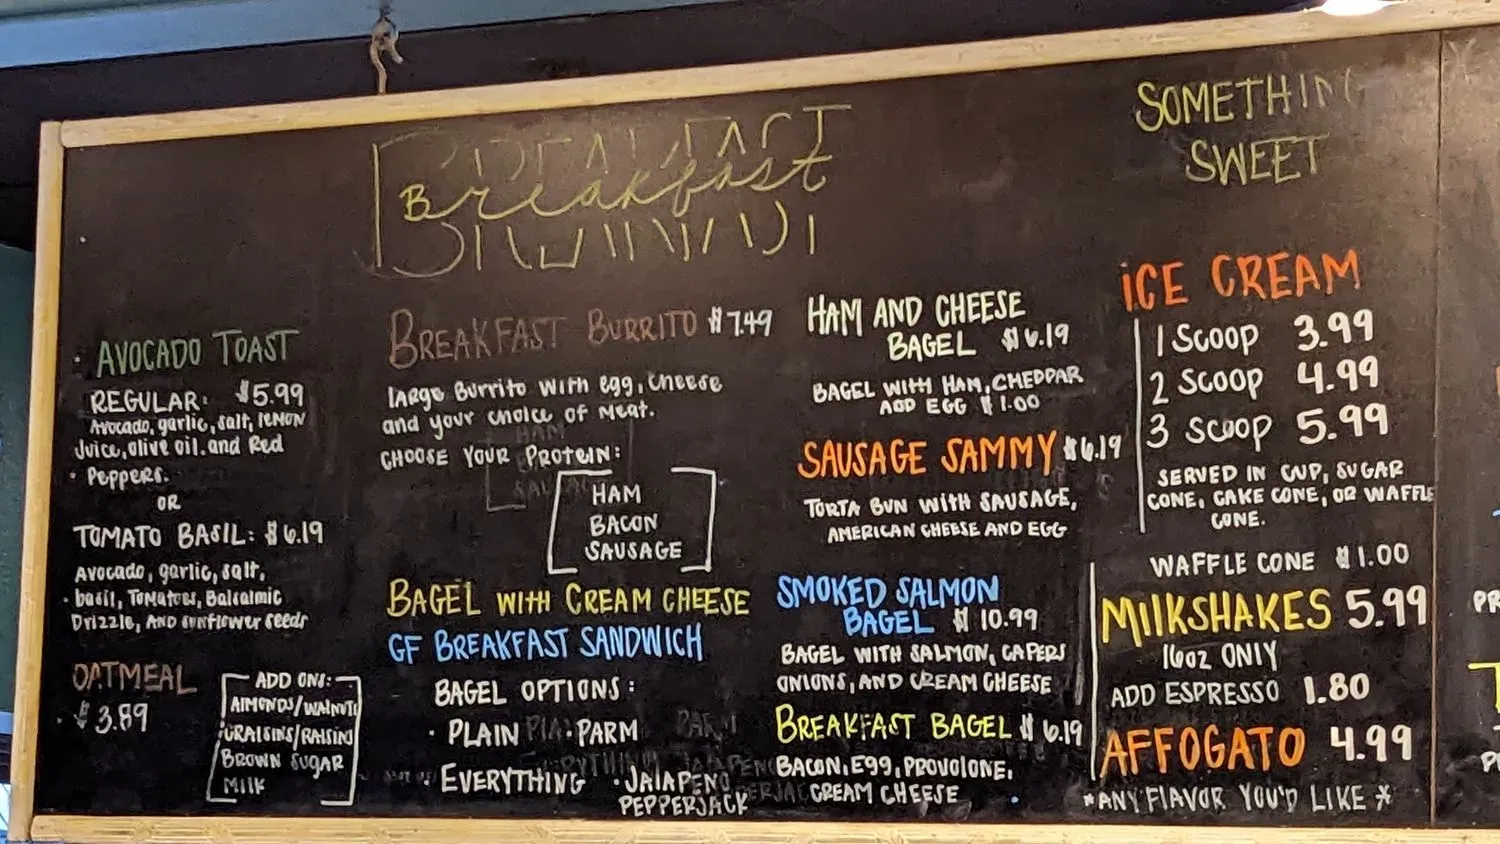 Breakfast
AVOCADO TOAST
REGULAR: $5.99
Avocado, garlic, salt, lemon
Juice, olive oil. and Red
• Peppers.
OR
TOMATO BASIL: $6.19
Avocado, garlic, salt,
• basil, Tomatoes, Balsalmic
Drizzle, AND sunflower seeds
OATMEAL
$3.89
ADD ONS:
AlMONDS/WALNUTS
CRAISINS/RAISINS
BROWN SUGAR
MilK
BREAKFAST BURRITO $7.49
large Burrito with egg, cheese
and your choice of Meat.
CHOOSE YOUR PROTEIN:
HAM
BACON
SAUSAGE
BAGEL WITH CREAM CHEESE
GF BREAKFAST SANDWICH
BAGEL OPTIONS:
• PLAIN • PARM
• EVERYTHING • JALAPENO
PEPPERJACK
HAM AND CHEESE
BAGEL $6.19
BAGEL WITH HAM, CHEDDAR
ADD EGG $1.00
SAUSAGE SAMMY $6.19
TORTA BUN WITH SAUSAGE,
AMERICAN CHEESE AND EGG
SMOKED SALMON
BAGEL $10.99
BAGEL WITH SALMON, CAPERS
ONIONS, AND CREAM CHEESE
BREAKFAST BAGEL $6.19
BACON, EGG, PROVOLONE,
CREAM CHEESE
SOMETHING
SWEET
ICE CREAM
1 SCOOP 3.99
2 SCOOP 4.99
3 SCOOP 5.99
SERVED IN CUP, SUGAR
CONE, CAKE CONE, OR WAFFLE
CONE.
WAFFLE CONE $1.00
MilKSHAKES 5.99
16oz ONlY
ADD ESPRESSO 1.80
AFFOGATO 4.99
*ANY FlAVOR YOU'D LIKE*